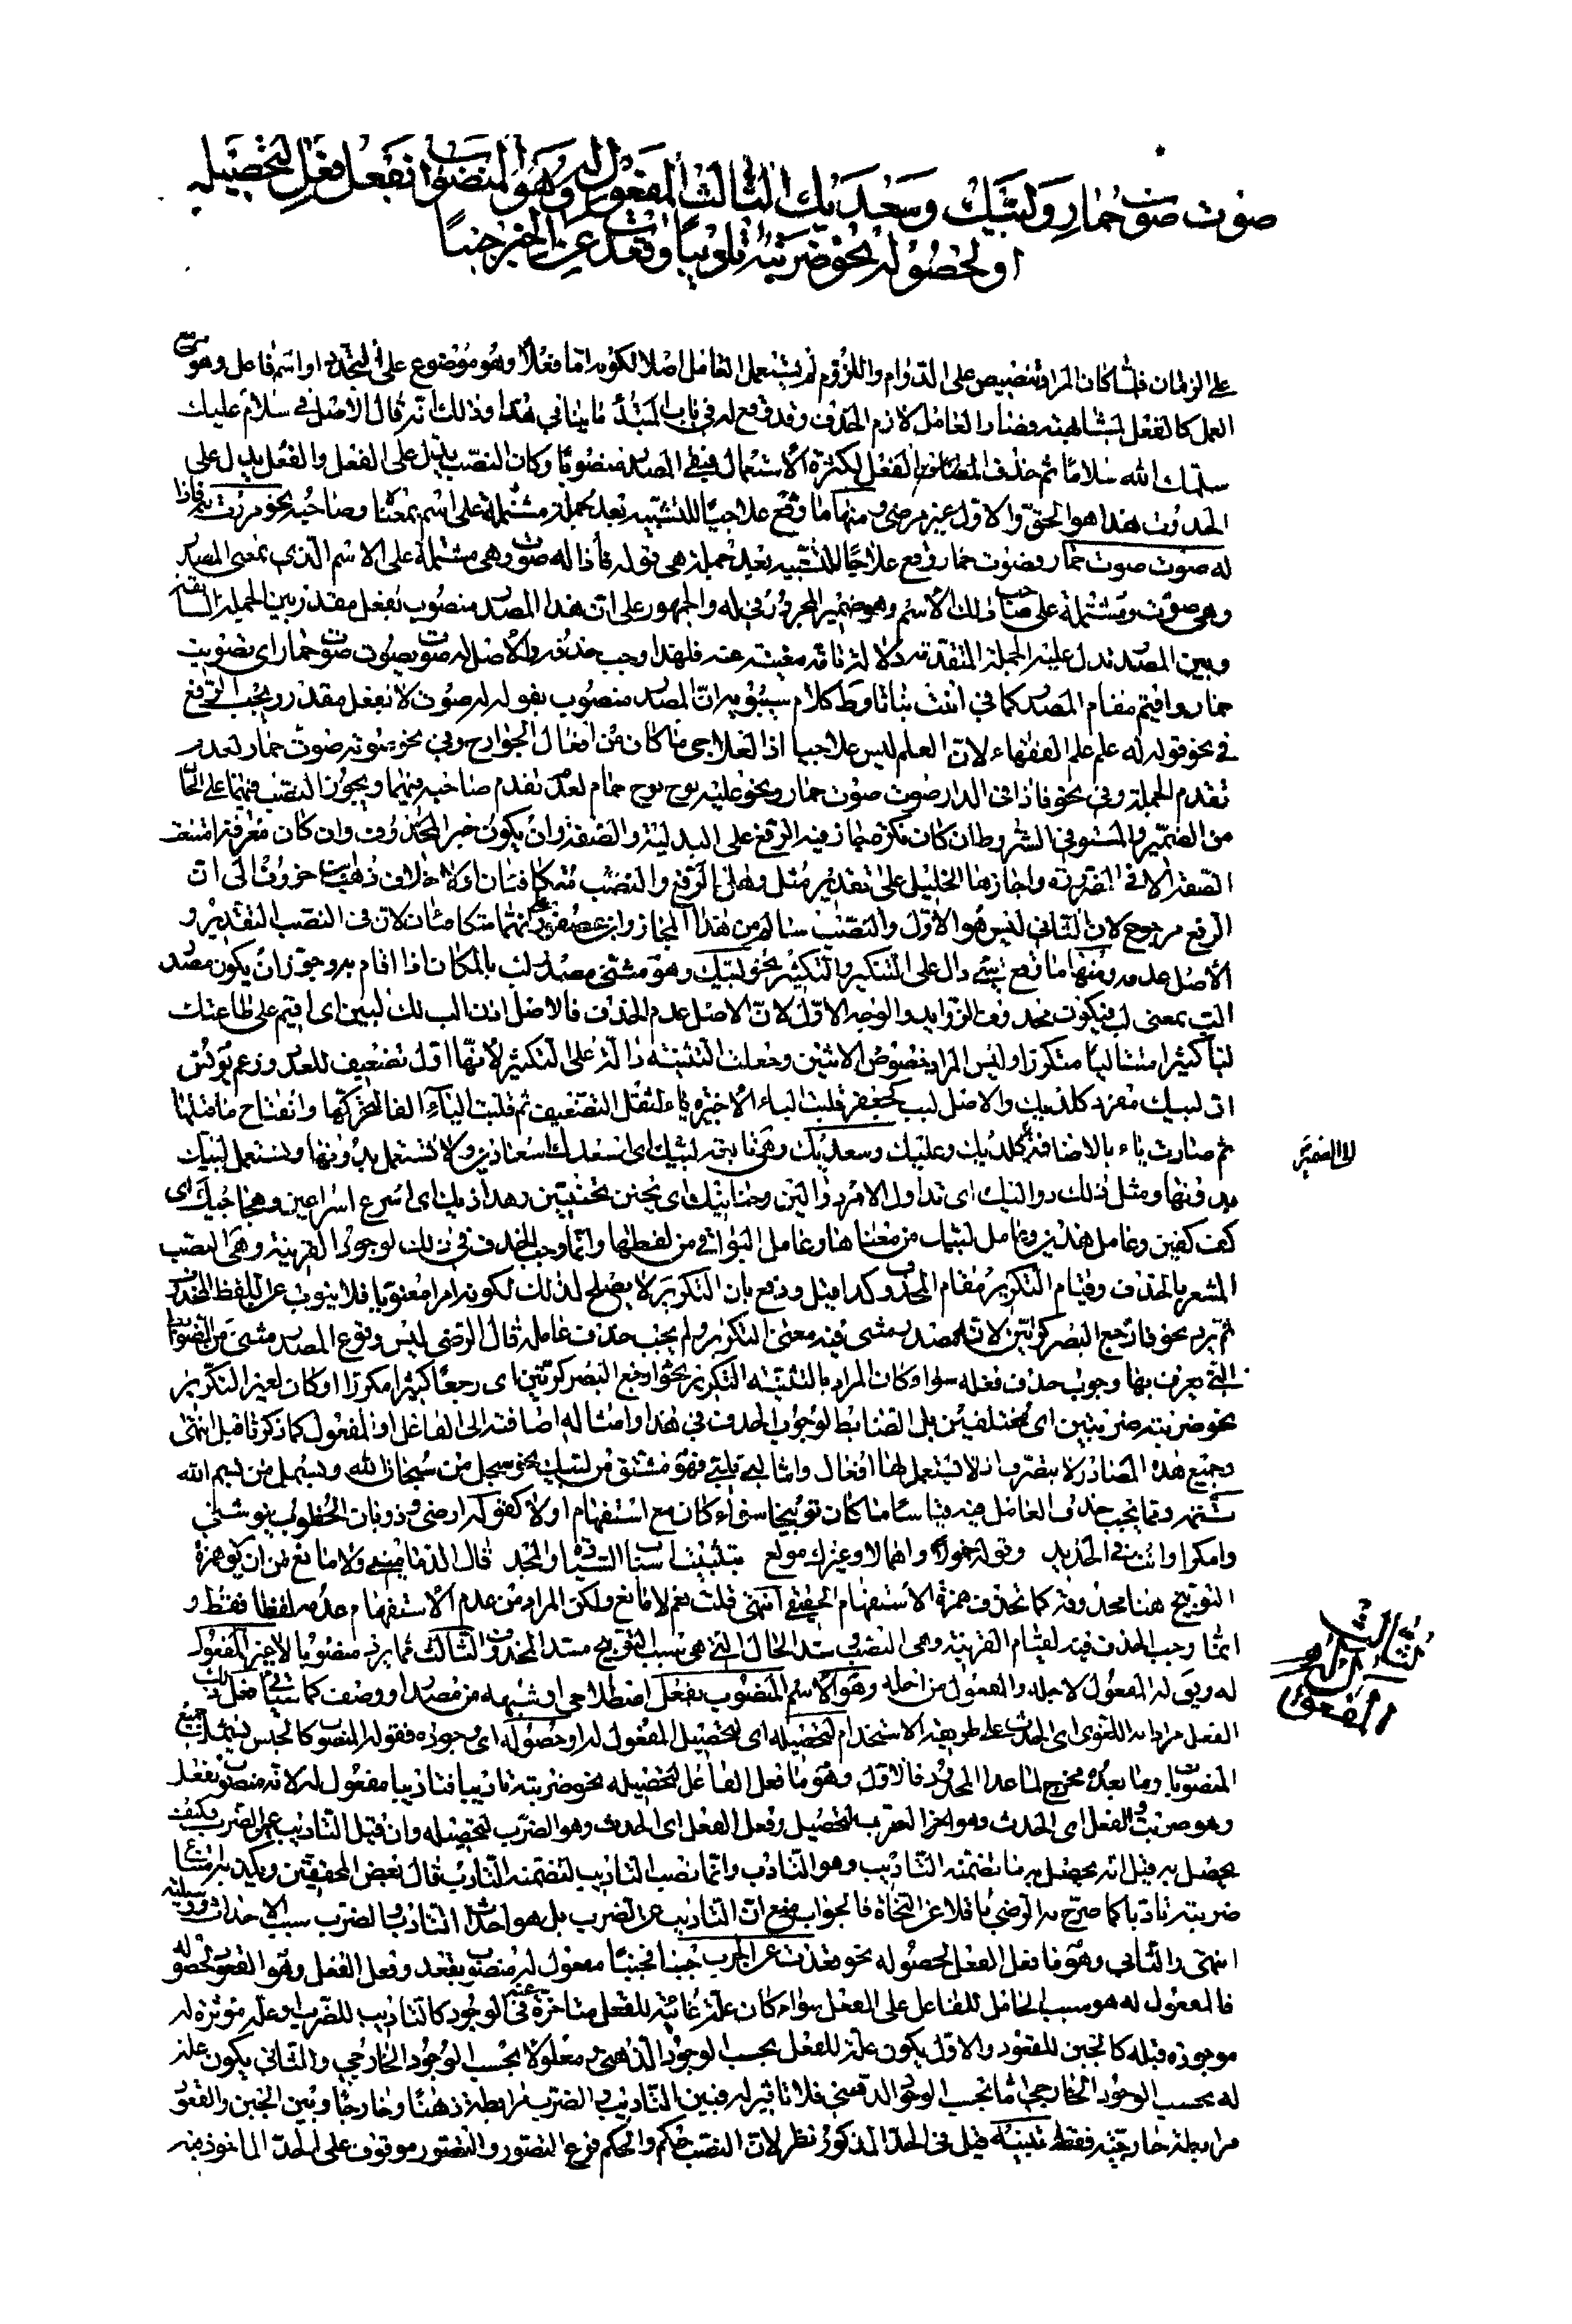 صوت صوت حمار ولبيك وسعديك الثالث المفعول له وهو المنصوب بفعل فعل لتحصيله
او لحصوله نحو ضربته تاديبا وقعدت عن الحرب جبنا
على الزمان فلما كان المراد تنصيص على الدوام واللزوم لم يستعمل العامل اصلا لكونه اما فعلا وهو موضوع على التجدد او اسم فاعل وهو مع
العمل كالفعل لمشابهته فصار العامل لازم الحذف وقد وقع له في باب المبتدأ ما ينافي هذا وذلك انه قال الاصل في سلام عليك
سلمك الله سلاما ثم حذف الفعل لكثرة الاستعمال فبقي المصدر منصوبا وكان النصب يدل على الفعل والفعل يدل على
الحدوث هذا هو الحق والاول غير مرضي ومنها ما وقع علاجيا للتشبيه بعد جملة مشتملة على اسم بمعناه وصاحبه نحو مررت به فاذا
له صوت صوت حمار فصوت حمار وقع علاجيا للتشبيه بعد جملة هي قوله فاذا له صوت وهي مشتملة على الاسم الذي بمعنى المصدر
وهي صوت ومشتملة على صاحب ذلك الاسم وهو ضمير المجرور في له والجمهور على ان هذا المصدر منصوب بفعل مقدر بين الجملة السابقة
وبين المصدر تدل عليه الجملة المتقدمة دلالة تامة مغنية عنه فلهذا وجب حذفه والاصل له صوت يصوت صوت حمار اي تصويت
حمار واقيم مقام المصدر كما في انبت نباتا وظ كلام سيبويه ان المصدر منصوب بقوله له صوت لا بفعل مقدر ويجب الرفع
في نحو قوله له علم علم الفقهاء لان العلم ليس علاجيا اذ العلاجي ما كان من افعال الجوارح وفي نحو صوته صوت حمار لعدم
تقدم الجملة وفي نحو فاذا في الدار صوت صوت حمار ونحو عليه نوح نوح حمام لعدم تقدم صاحبه فيهما ويجوز النصب فيهما على الحال
من الضمير والمستوفي الشروط ان كان نكرة جاز فيه الرفع على البدلية والصفة وان يكون خبر المحذوف وان كان معرفة امتنعت
الصفة الا في المعرفة واجازها الخليل على تقدير مثل وهل الرفع والنصب متكافئان اولا خلاف ذهب ابن خروف الى ان
الرفع مرجوح لان الثاني ليس هو الاول والنصب سالم من هذا المجاز وابن عصفور الى انهما متكافئان لان في النصب التقدير و
الاصل عدمه ومنها ما وقع مثنى دال على التكرير والتكثير نحو لبيك وهو مثنى مصدر لب بالمكان اذا اقام به وجوز ان يكون مصدر
الب بمعنى لب فيكون محذوف الزوايد والوجه الاول لان الاصل عدم الحذف فالاصل اذن الب لك لبين اي اقيم على طاعتك
لبا كثيرا متتاليا متكررا وليس المراد خصوص الاثنين وجعلت التثنية دالة على التكثير لانها اول تضعيف للعدد وزعم يونس
ان لبيك مفرد كلديك والاصل لبب كجعفر قلبت الباء الاخيرة ياء لثقل التضعيف ثم قلبت الياء الفا لتحركها وانفتاح ما قبلها
ثم صارت ياء بالاضافة كلديك وعليك وسعديك وهي تابعة لبيك اي اسعدك اسعادين ولا تستعمل بدونها وتستعمل لبيك
الى الضمير
بدونها ومثل ذلك دواليك اي تداول الامر دوالين وحنانيك اي تحنن تحننين وهذاذيك اي اسرع اسراعين وحجازيك اي
كف كفين وعامل هذين وعامل لبيك من معناها وعامل البواقي من لفظها وانما وجب الحذف في ذلك لوجود القرينة وهي النصب
المشعر بالحذف وقيام التكرير مقام المحذوف كذا قيل ودفع بان التكرير لا يصلح لذلك لكونه امرا معنويا فلا ينوب عن اللفظ المحذوف
ثم يرد نحو فارجع البصر كرتين لان المصدر مثنى فيه معنى التكرير ولم يجب حذف عامله قال الرضي ليس وقوع المصدر مثنى من الضوابط
التي يعرف بها وجوب حذف فعله سواء كان المراد بالتثنية التكرير نحو ارجع البصر كرتين اي رجعا كثيرا مكررا او كان لغير التكرير
نحو ضربته ضربتين اي مختلفين بل الضابط لوجوب الحذف في هذا وامثاله اضافته الى الفاعل او المفعول كما ذكرنا قبل انتهى
وجميع هذه المصادر لا يتصرف اذ لا يستعمل لها افعال واما لبى يلبي فهو مشتق من لبيك نحو سبحل من سبحان الله وبسمل من بسم الله
تتمة ومما يجب حذف العامل فيه قياسا ما كان توبيخا سواء كان مع استفهام او لا كقوله ارضى وذوبان الخطوب تنوشني
وامكرا وانت في الحديد وقوله خمولا واهمالا وغيرك مولع بتثبيت اسباب السيادة والمجد قال الدماميني ولا مانع من ان يكون همزة
التوبيخ هنا محذوفة كما تحذف همزة الاستفهام الحقيقي انتهى قلت نعم لا مانع ولكن المراد من عدم الاستفهام عدمه لفظا فقط و
انما وجب الحذف فيه لقيام القرينة وهي النصب وسد الحال التي هي سبب التوبيخ مسد المحذوف الثالث مما يرد منصوبا لا غير المفعول
الثالث
المفعول له
له ويق له المفعول لاجله والمفعول من اجله وهو الاسم المنصوب بفعل اصطلاحي او شبهه من مصدر او وصف كما سيأتي فعل ذلك
الفعل مرادا به اللغوي اي الحدث على طريقة الاستخدام لتحصيله اي لتحصيل المفعول له او حصوله اي وجوده فقوله المنصوب كالجنس يشمل جميع
المنصوبات وما بعده مخرج لما عدا المحدود فالاول وهو ما فعل الفاعل لتحصيله نحو ضربته تاديبا فتاديبا مفعول له لانه منصوب بفعل
وهو ضربت والفعل اي الحدث وهو الضرب لتحصيل وفعل الفعل اي الحدث وهو الضرب لتحصيله وان قيل التاديب عين الضرب فكيف
يحصل به قيل انه يحصل به ما تضمنه التاديب وهو التادب وانما نصب التاديب لتضمنه التادب قال بعض المحققين
ضربته تادبا كما صرح به الرضي ناقلا عن النحاة فالجواب منع ان التاديب عين الضرب بل هو احداث التادب والضرب سبب الاحداث ووسيلته
انتهى والثاني وهو ما فعل الفعل لحصوله نحو قعدت عن الحرب جبنا فجبنا مفعول له منصوب بقعد وفعل الفعل وهو القعود لحصوله
فالمفعول له هو سبب الحامل للفاعل على الفعل سواء كان علة غائية للفعل متاخرة عنه في الوجود كالتاديب للضرب او علة مؤثرة له
موجودة قبله كالجبن للقعود والاول يكون علة للفعل بحسب الوجود الذهني ومعلولا بحسب الوجود الخارجي والثاني يكون علة
له بحسب الوجود الخارجي اما بحسب الوجود الذهني فلا تاثير له فبين التاديب والضرب مرابطة ذهنا وخارجا وبين الجبن والقعود
مرابطة خارجية فقط تنبيه قيل في الحد المذكور نظر لان النصب حكم والحكم فرع التصور والتصور موقوف على الحد الماخوذ منه